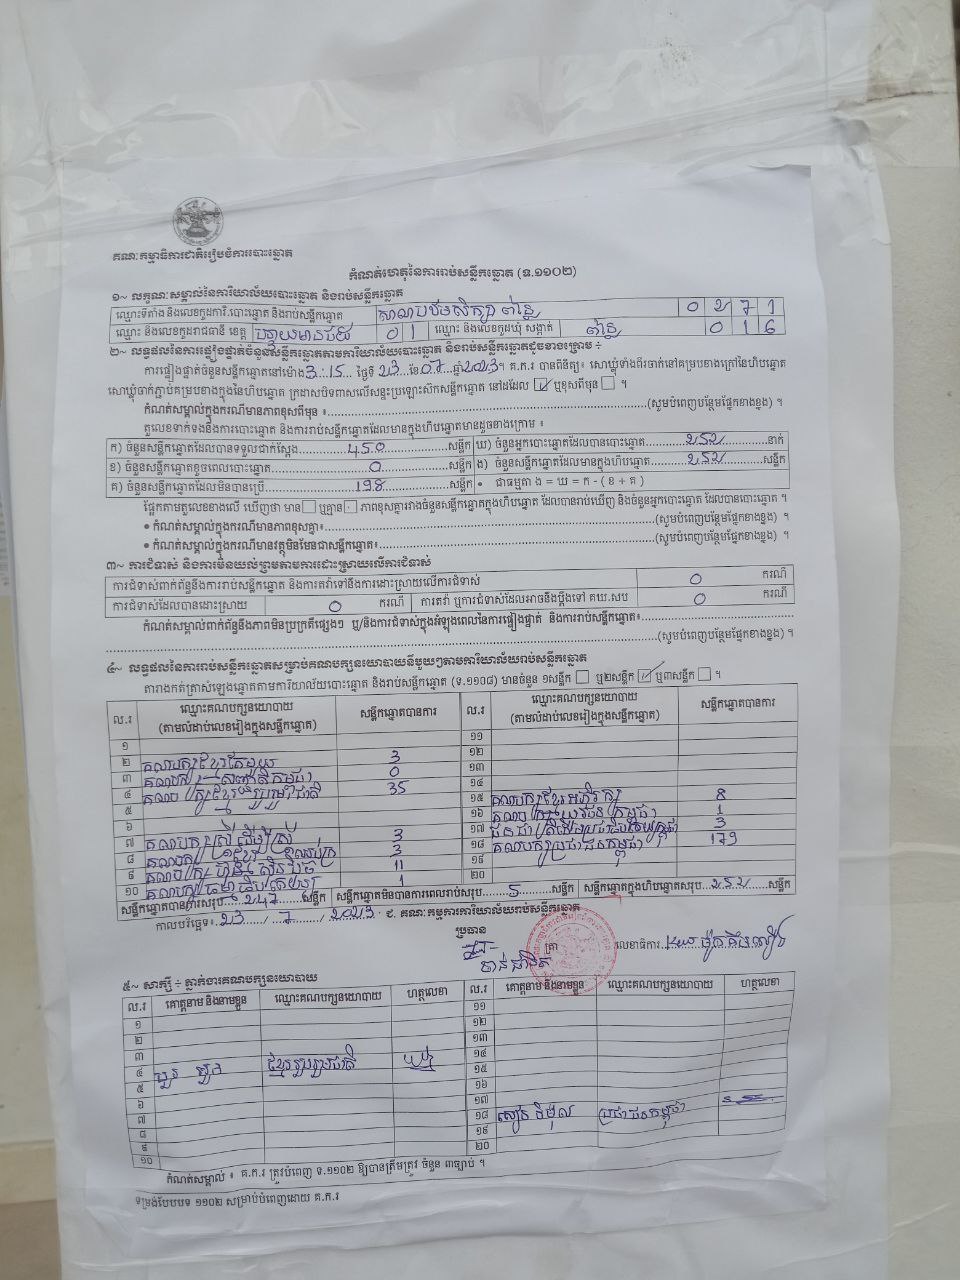 គណៈកម្មាធិការជាតិរៀបចំការបោះឆ្នោត
កំណត់ហេតុនៃការរាប់សន្លឹកឆ្នោត (ទ.១១០២)
១~ លក្ខណៈសម្គាល់នៃការិយាល័យបោះឆ្នោត និងរាប់សន្លឹកឆ្នោត
ឈ្មោះទីតាំង និងលេខកូដការិ.បោះឆ្នោត និងរាប់សន្លឹកឆ្នោត 0 2 7 1
ឈ្មោះ និងលេខកូដរាជធានី ខេត្ត បន្ទាយមានជ័យ 0 1 ឈ្មោះ និងលេខកូដឃុំ សង្កាត់ 0 1 6
២~ លទ្ធផលនៃការផ្ទៀងផ្ទាត់ចំនួនសន្លឹកឆ្នោតតាមការិយាល័យបោះឆ្នោត និងរាប់សន្លឹកឆ្នោតដូចខាងក្រោម ÷
ការផ្ទៀងផ្ទាត់ចំនួនសន្លឹកឆ្នោតនៅម៉ោង 3:15 ថ្ងៃទី 23 ខែ 07 ឆ្នាំ 2023។ គ.ក.រ បានពិនិត្យ៖ សោឃ្លុំទាំងពីរចាក់នៅគម្របខាងក្រៅនៃហិបឆ្នោត
សោឃ្លុំចាក់ភ្ជាប់គម្របខាងក្នុងនៃហិបឆ្នោត ក្រដាសបិទពាសលើសន្ទះប្រឡោះស៊កសន្លឹកឆ្នោត នៅដដែល ឬខុសពីមុន ។
កំណត់សម្គាល់ក្នុងករណីមានភាពខុសពីមុន ៖ (សូមបំពេញបន្ថែមផ្នែកខាងខ្នង) ។
តួលេខទាក់ទងនឹងការបោះឆ្នោត និងការរាប់សន្លឹកឆ្នោតដែលមានក្នុងហិបឆ្នោតមានដូចខាងក្រោម ៖
ក) ចំនួនសន្លឹកឆ្នោតដែលបានទទួលជាក់ស្តែង 450 សន្លឹក ឃ) ចំនួនអ្នកបោះឆ្នោតដែលបានបោះឆ្នោត 252 នាក់
ខ) ចំនួនសន្លឹកឆ្នោតខូចពេលបោះឆ្នោត 0 សន្លឹក ង) ចំនួនសន្លឹកឆ្នោតដែលមានក្នុងហិបឆ្នោត 252 សន្លឹក
គ) ចំនួនសន្លឹកឆ្នោតដែលមិនបានប្រើ 198 សន្លឹក • ជាធម្មតា ង = ឃ = ក - ( ខ + គ )
ផ្អែកតាមតួលេខខាងលើ ឃើញថា មាន ឬគ្មាន ភាពខុសគ្នារវាងចំនួនសន្លឹកឆ្នោតក្នុងហិបឆ្នោត ដែលបានរាប់ឃើញ និងចំនួនអ្នកបោះឆ្នោត ដែលបានបោះឆ្នោត ។
• កំណត់សម្គាល់ក្នុងករណីមានភាពខុសគ្នា៖ (សូមបំពេញបន្ថែមផ្នែកខាងខ្នង) ។
• កំណត់សម្គាល់ក្នុងករណីមានវត្ថុមិនមែនជាសន្លឹកឆ្នោត៖ (សូមបំពេញបន្ថែមផ្នែកខាងខ្នង) ។
៣~ ការជំទាស់ និងការមិនយល់ព្រមតាមការដោះស្រាយលើការជំទាស់
ការជំទាស់ពាក់ព័ន្ធនឹងការរាប់សន្លឹកឆ្នោត និងការតវ៉ាទៅនឹងការដោះស្រាយលើការជំទាស់ 0 ករណី
ការជំទាស់ដែលបានដោះស្រាយ 0 ករណី ការតវ៉ា ឬការជំទាស់ដែលអាចនឹងប្តឹងទៅ គឃ.សប 0 ករណី
កំណត់សម្គាល់ពាក់ព័ន្ធនឹងភាពមិនប្រក្រតីផ្សេងៗ ឬ/និងការជំទាស់ក្នុងអំឡុងពេលនៃការផ្ទៀងផ្ទាត់ និងការរាប់សន្លឹកឆ្នោត៖
(សូមបំពេញបន្ថែមផ្នែកខាងខ្នង) ។
៤~ លទ្ធផលនៃការរាប់សន្លឹកឆ្នោតសម្រាប់គណបក្សនយោបាយនីមួយៗតាមការិយាល័យរាប់សន្លឹកឆ្នោត
តារាងកត់ត្រាសំឡេងឆ្នោតតាមការិយាល័យបោះឆ្នោត និងរាប់សន្លឹកឆ្នោត (ទ.១១០៨) មានចំនួន ១សន្លឹក ឬ២សន្លឹក ឬ៣សន្លឹក ។
ល.រ ឈ្មោះគណបក្សនយោបាយ (តាមលំដាប់លេខរៀងក្នុងសន្លឹកឆ្នោត) សន្លឹកឆ្នោតបានការ ល.រ ឈ្មោះគណបក្សនយោបាយ (តាមលំដាប់លេខរៀងក្នុងសន្លឹកឆ្នោត) សន្លឹកឆ្នោតបានការ
១ ១១
២ គណបក្សខ្មែរតែមួយ 3 ១២
៣ 0 ១៣
៤ គណបក្សខ្មែររួបរួមជាតិ 35 ១៤
៥ ១៥ គណបក្សខ្មែរអភិរក្ស 8
៦ ១៦ គណបក្សយុវជនកម្ពុជា 1
៧ 3 ១៧ 3
៨ 3 ១៨ គណបក្សប្រជាជនកម្ពុជា 179
៩ គណបក្សហ្វ៊ុនស៊ិនប៉ិច 11 ១៩
១០ គណបក្សធម្មាធិបតេយ្យ 1 ២០
សន្លឹកឆ្នោតបានការសរុប 247 សន្លឹក សន្លឹកឆ្នោតមិនបានការពេលរាប់សរុប 5 សន្លឹក សន្លឹកឆ្នោតក្នុងហិបឆ្នោតសរុប 252 សន្លឹក
កាលបរិច្ឆេទ៖ 23 / 7 / 2023 ជ. គណៈកម្មការការិយាល័យរាប់សន្លឹកឆ្នោត
ប្រធាន
ត្រា លេខាធិការ
៥~ សាក្សី ÷ ភ្នាក់ងារគណបក្សនយោបាយ
ល.រ គោត្តនាម និងនាមខ្លួន ឈ្មោះគណបក្សនយោបាយ ហត្ថលេខា ល.រ គោត្តនាម និងនាមខ្លួន ឈ្មោះគណបក្សនយោបាយ ហត្ថលេខា
១ ១១
២ ១២
៣ ១៣
៤ ខ្មែររួបរួមជាតិ ១៤
៥ ១៥
៦ ១៦
៧ ១៧
៨ ១៨ ប្រជាជនកម្ពុជា
៩ ១៩
១០ ២០
កំណត់សម្គាល់ ៖ គ.ក.រ ត្រូវបំពេញ ទ.១១០២ ឱ្យបានត្រឹមត្រូវ ចំនួន ៣ច្បាប់ ។
ទម្រង់បែបបទ ១១០២ សម្រាប់បំពេញដោយ គ.ក.រ